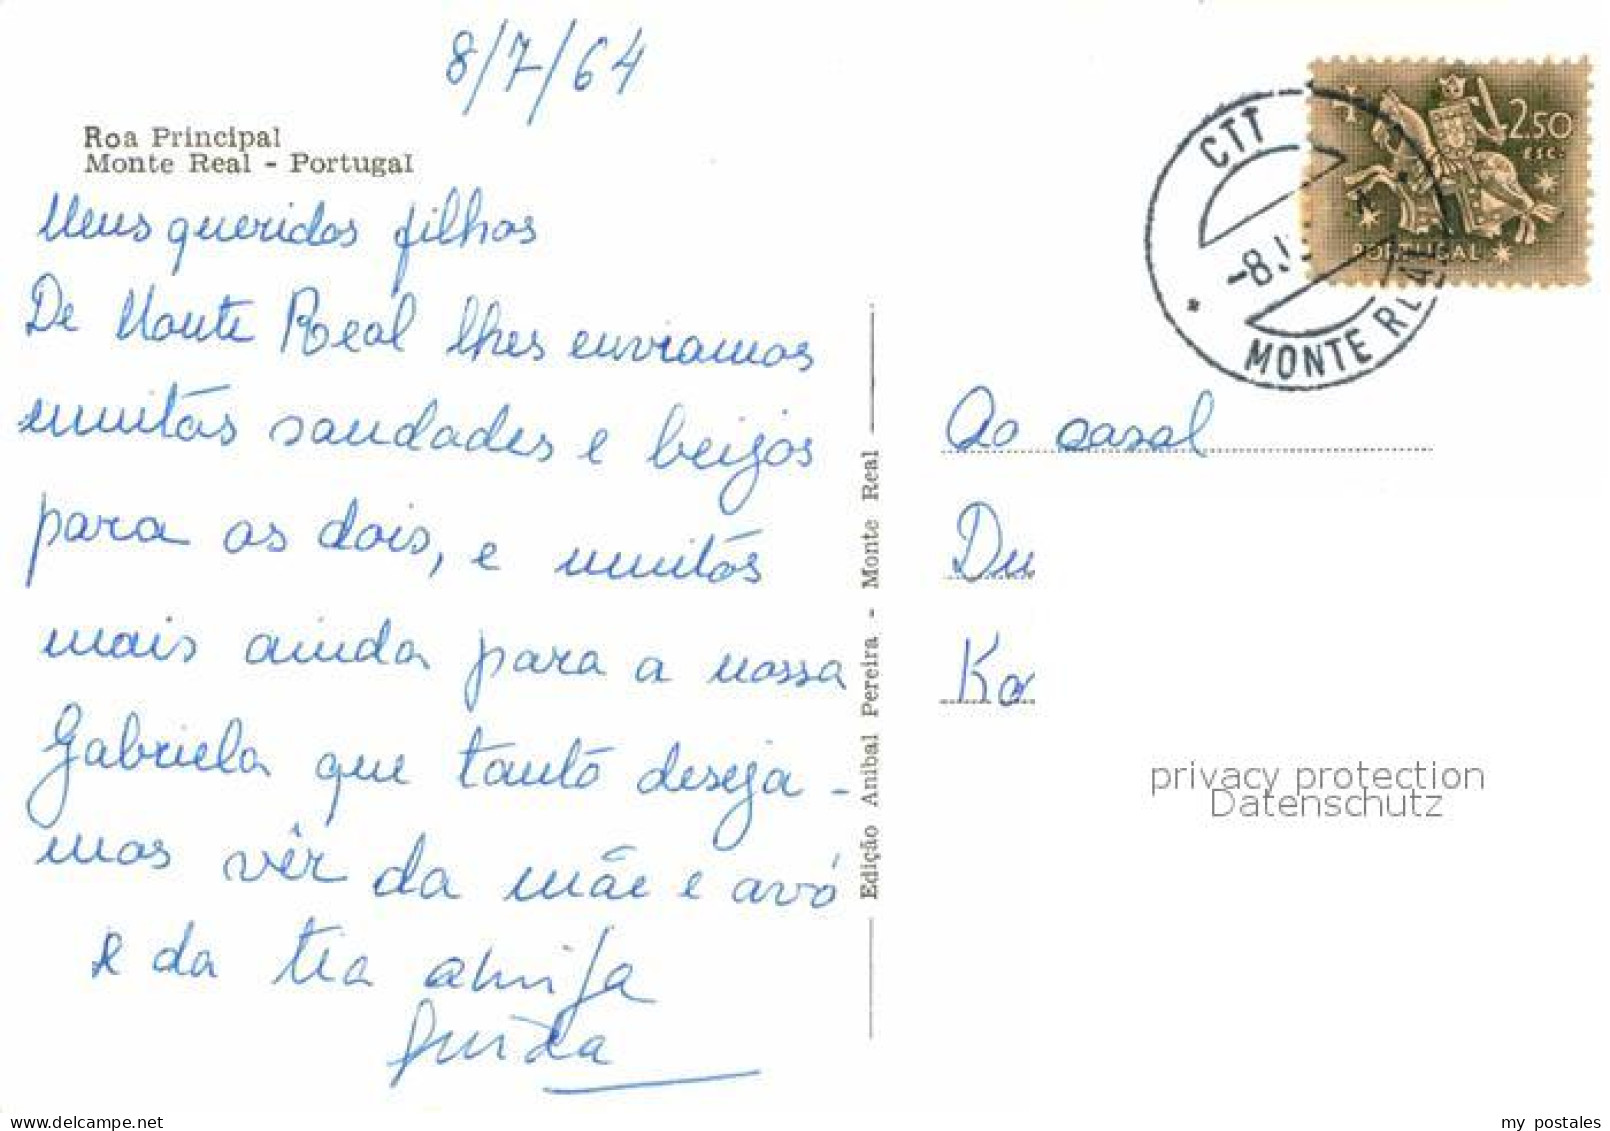 8/7/64
Roa Principal
Monte Real - Portugal
Meus queridos filhos
De Monte Real lhes enviamos
muitas saudades e beijos
para os dois, e muitos
mais ainda para a nossa
Gabriela que tanto deseja-
mos vêr da mãe e avó
e da tia amiga
Edição Anibal Pereira - Monte Real
CTT
-8.
MONTE REAL
2$50
ESC.
PORTUGAL
Ao casal
Du
Ka
privacy protection
Datenschutz
delcampe.net
my postales